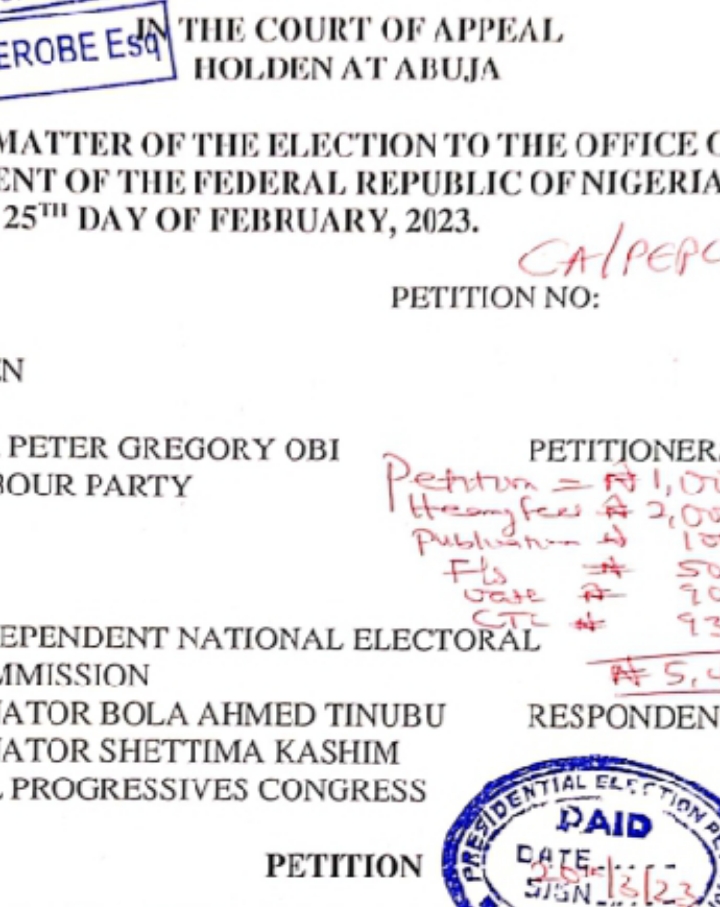 EROBE Esq
IN THE COURT OF APPEAL
HOLDEN AT ABUJA
MATTER OF THE ELECTION TO THE OFFICE O
ENT OF THE FEDERAL REPUBLIC OF NIGERIA
25TH DAY OF FEBRUARY, 2023.
CA/PEPC
PETITION NO:
EN
PETER GREGORY OBI PETITIONER
BOUR PARTY
Petition = ₦ 1,0
Hearing fees ₦ 2,00
Publication ₦ 10
F/s ₦ 50
Oath ₦ 90
CTC ₦ 93
₦ 5,
EPENDENT NATIONAL ELECTORAL
MMISSION
NATOR BOLA AHMED TINUBU RESPONDEN
NATOR SHETTIMA KASHIM
L PROGRESSIVES CONGRESS
PRESIDENTIAL ELECTION PE
PAID
PETITION
DATE
SIGN
20th/3/23